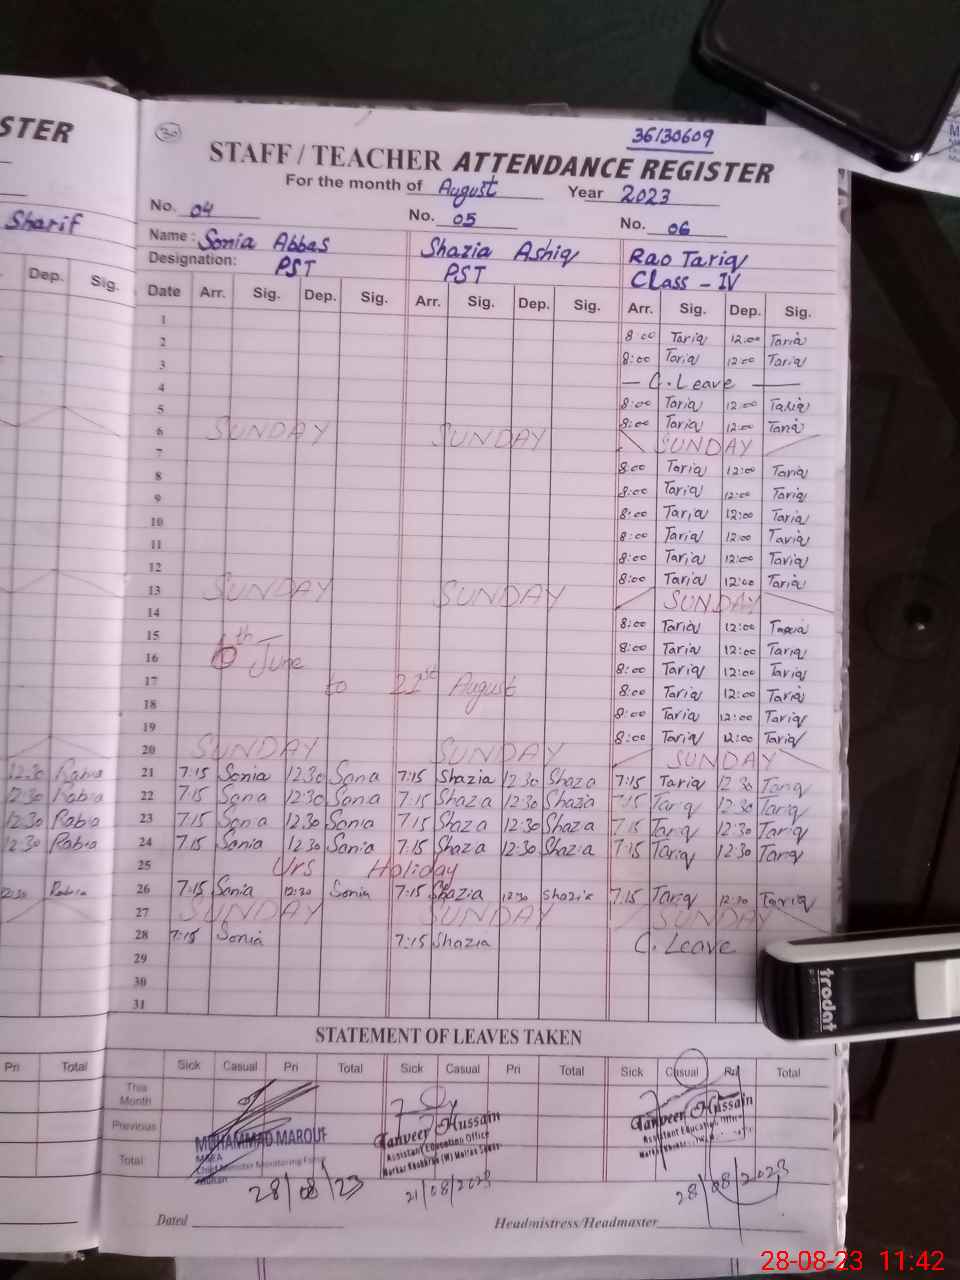 STER
Sharif
Dep. Sig.
30
36130609
STAFF / TEACHER ATTENDANCE REGISTER
For the month of August Year 2023
No. 04 No. 05 No. 06
Name: Sonia Abbas Shazia Ashiq Rao Tariq
Designation: PST PST Class - IV
Date Arr. Sig. Dep. Sig. Arr. Sig. Dep. Sig. Arr. Sig. Dep. Sig.
1 8:00 Tariq 12:00 Tariq
2 8:00 Tariq 12:00 Tariq
3 — C. Leave —
4 8:00 Tariq 12:00 Tariq
5 8:00 Tariq 12:00 Tariq
6 SUNDAY SUNDAY SUNDAY
7 8:00 Tariq 12:00 Tariq
8 8:00 Tariq 12:00 Tariq
9 8:00 Tariq 12:00 Tariq
10 8:00 Tariq 12:00 Tariq
11 8:00 Tariq 12:00 Tariq
12 8:00 Tariq 12:00 Tariq
13 SUNDAY SUNDAY SUNDAY
14 8:00 Tariq 12:00 Tariq
15 8:00 Tariq 12:00 Tariq
16 6th June 8:00 Tariq 12:00 Tariq
17 to 21st August 8:00 Tariq 12:00 Tariq
18 8:00 Tariq 12:00 Tariq
19 8:00 Tariq 12:00 Tariq
20 SUNDAY SUNDAY SUNDAY
12:30 Rabia 21 7:15 Sonia 12:30 Sona 7:15 Shazia 12:30 Shaza 7:15 Tariq 12:30 Tariq
12:30 Rabia 22 7:15 Sona 12:30 Sonia 7:15 Shaza 12:30 Shazia 7:15 Tariq 12:30 Tariq
12:30 Rabia 23 7:15 Sonia 12:30 Sonia 7:15 Shaza 12:30 Shaza 7:15 Tariq 12:30 Tariq
12:30 Rabia 24 7:15 Sonia 12:30 Sania 7:15 Shaza 12:30 Shazia 7:15 Tariq 12:30 Tariq
25 Urs Holiday
12:30 Rabia 26 7:15 Sania 12:30 Sonia 7:15 Shazia 12:30 Shazia 7:15 Tariq 12:30 Tariq
27 SUNDAY SUNDAY SUNDAY
28 7:15 Sonia 7:15 Shazia C. Leave
29
30
31
trodat
STATEMENT OF LEAVES TAKEN
Pri Total Sick Casual Pri Total Sick Casual Pri Total Sick Casual Pri Total
This Month
Previous
Total
MUHAMMAD MAROUF
MMEA
Chief Minister Monitoring Force
Multan
28/08/23
Tanveer Hussain
Assistant Education Office
21/08/2023
Tanveer Hussain
Assistant Education Office
28/08/2023
Dated Headmistress/Headmaster
28-08-23 11:42